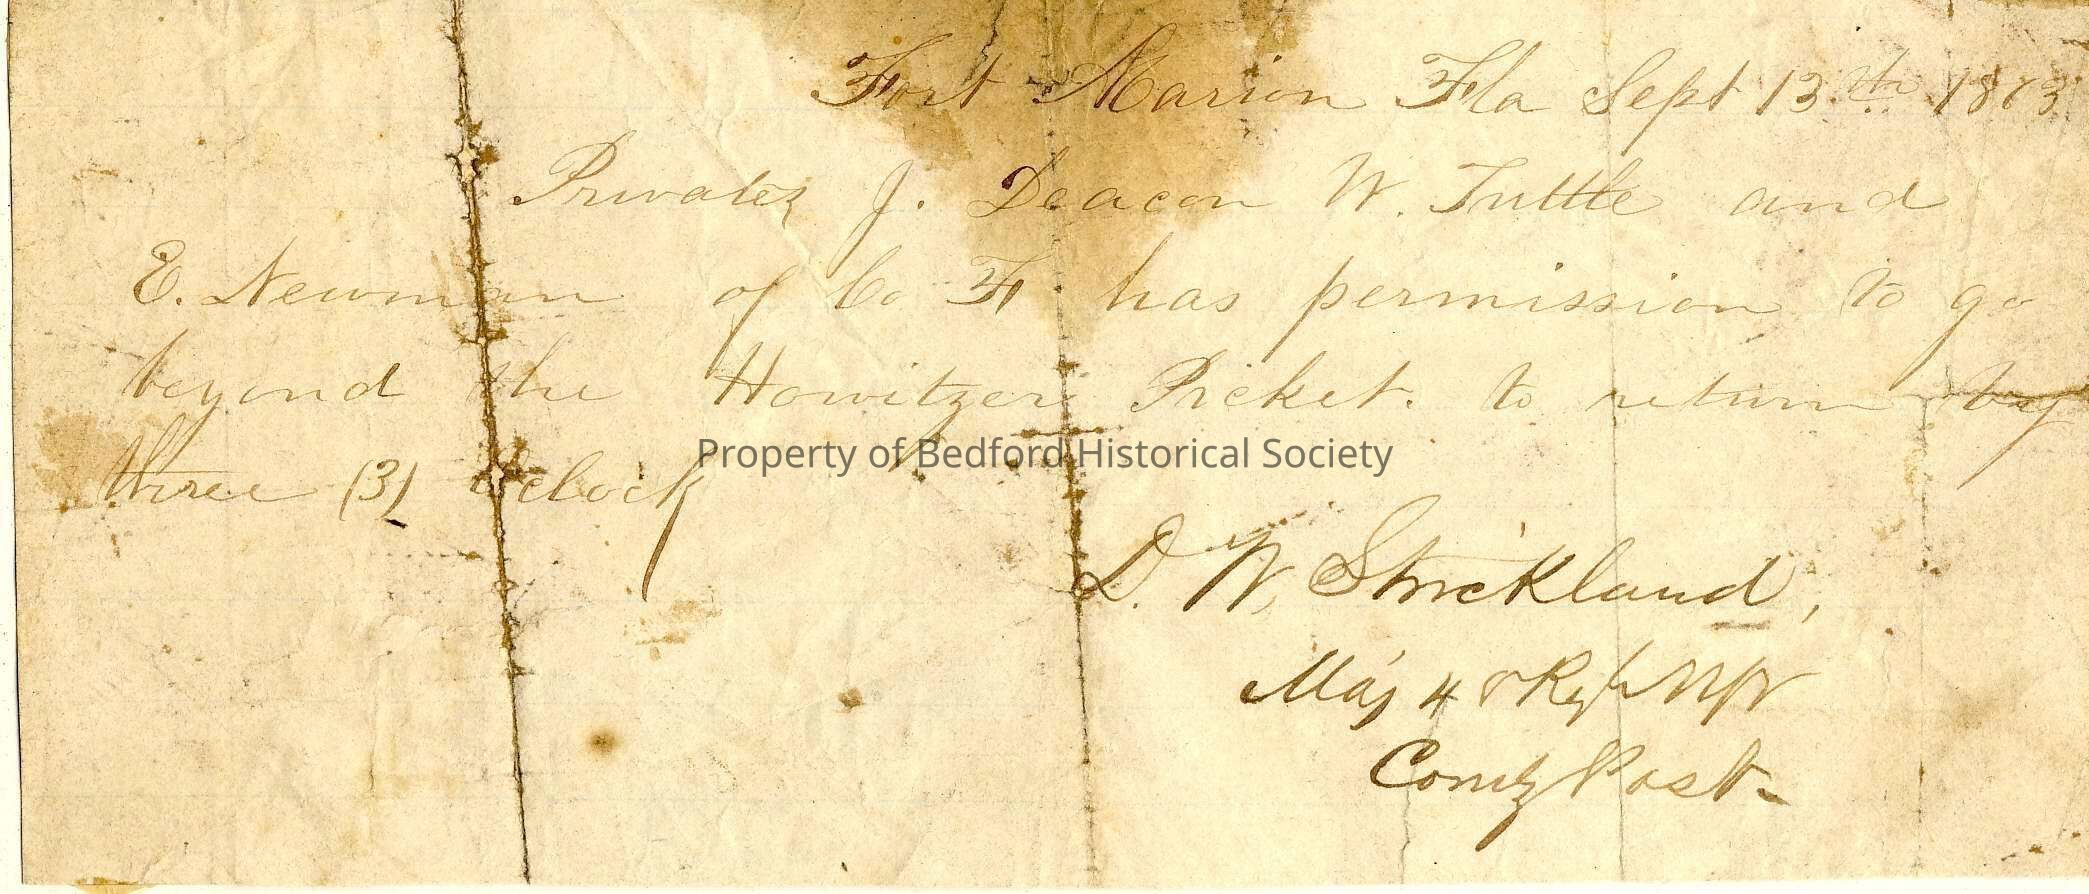 Fort Marion Fla Sept 13th 1863
Privates J. Deacon W. Tuttle and
E. Newman of Co F. has permission to go
beyond the Howitzer Picket. to return by
three (3) Oclock
Property of Bedford Historical Society
D. W. Strickland,
Maj 48 Regt NYV
Comdg Post